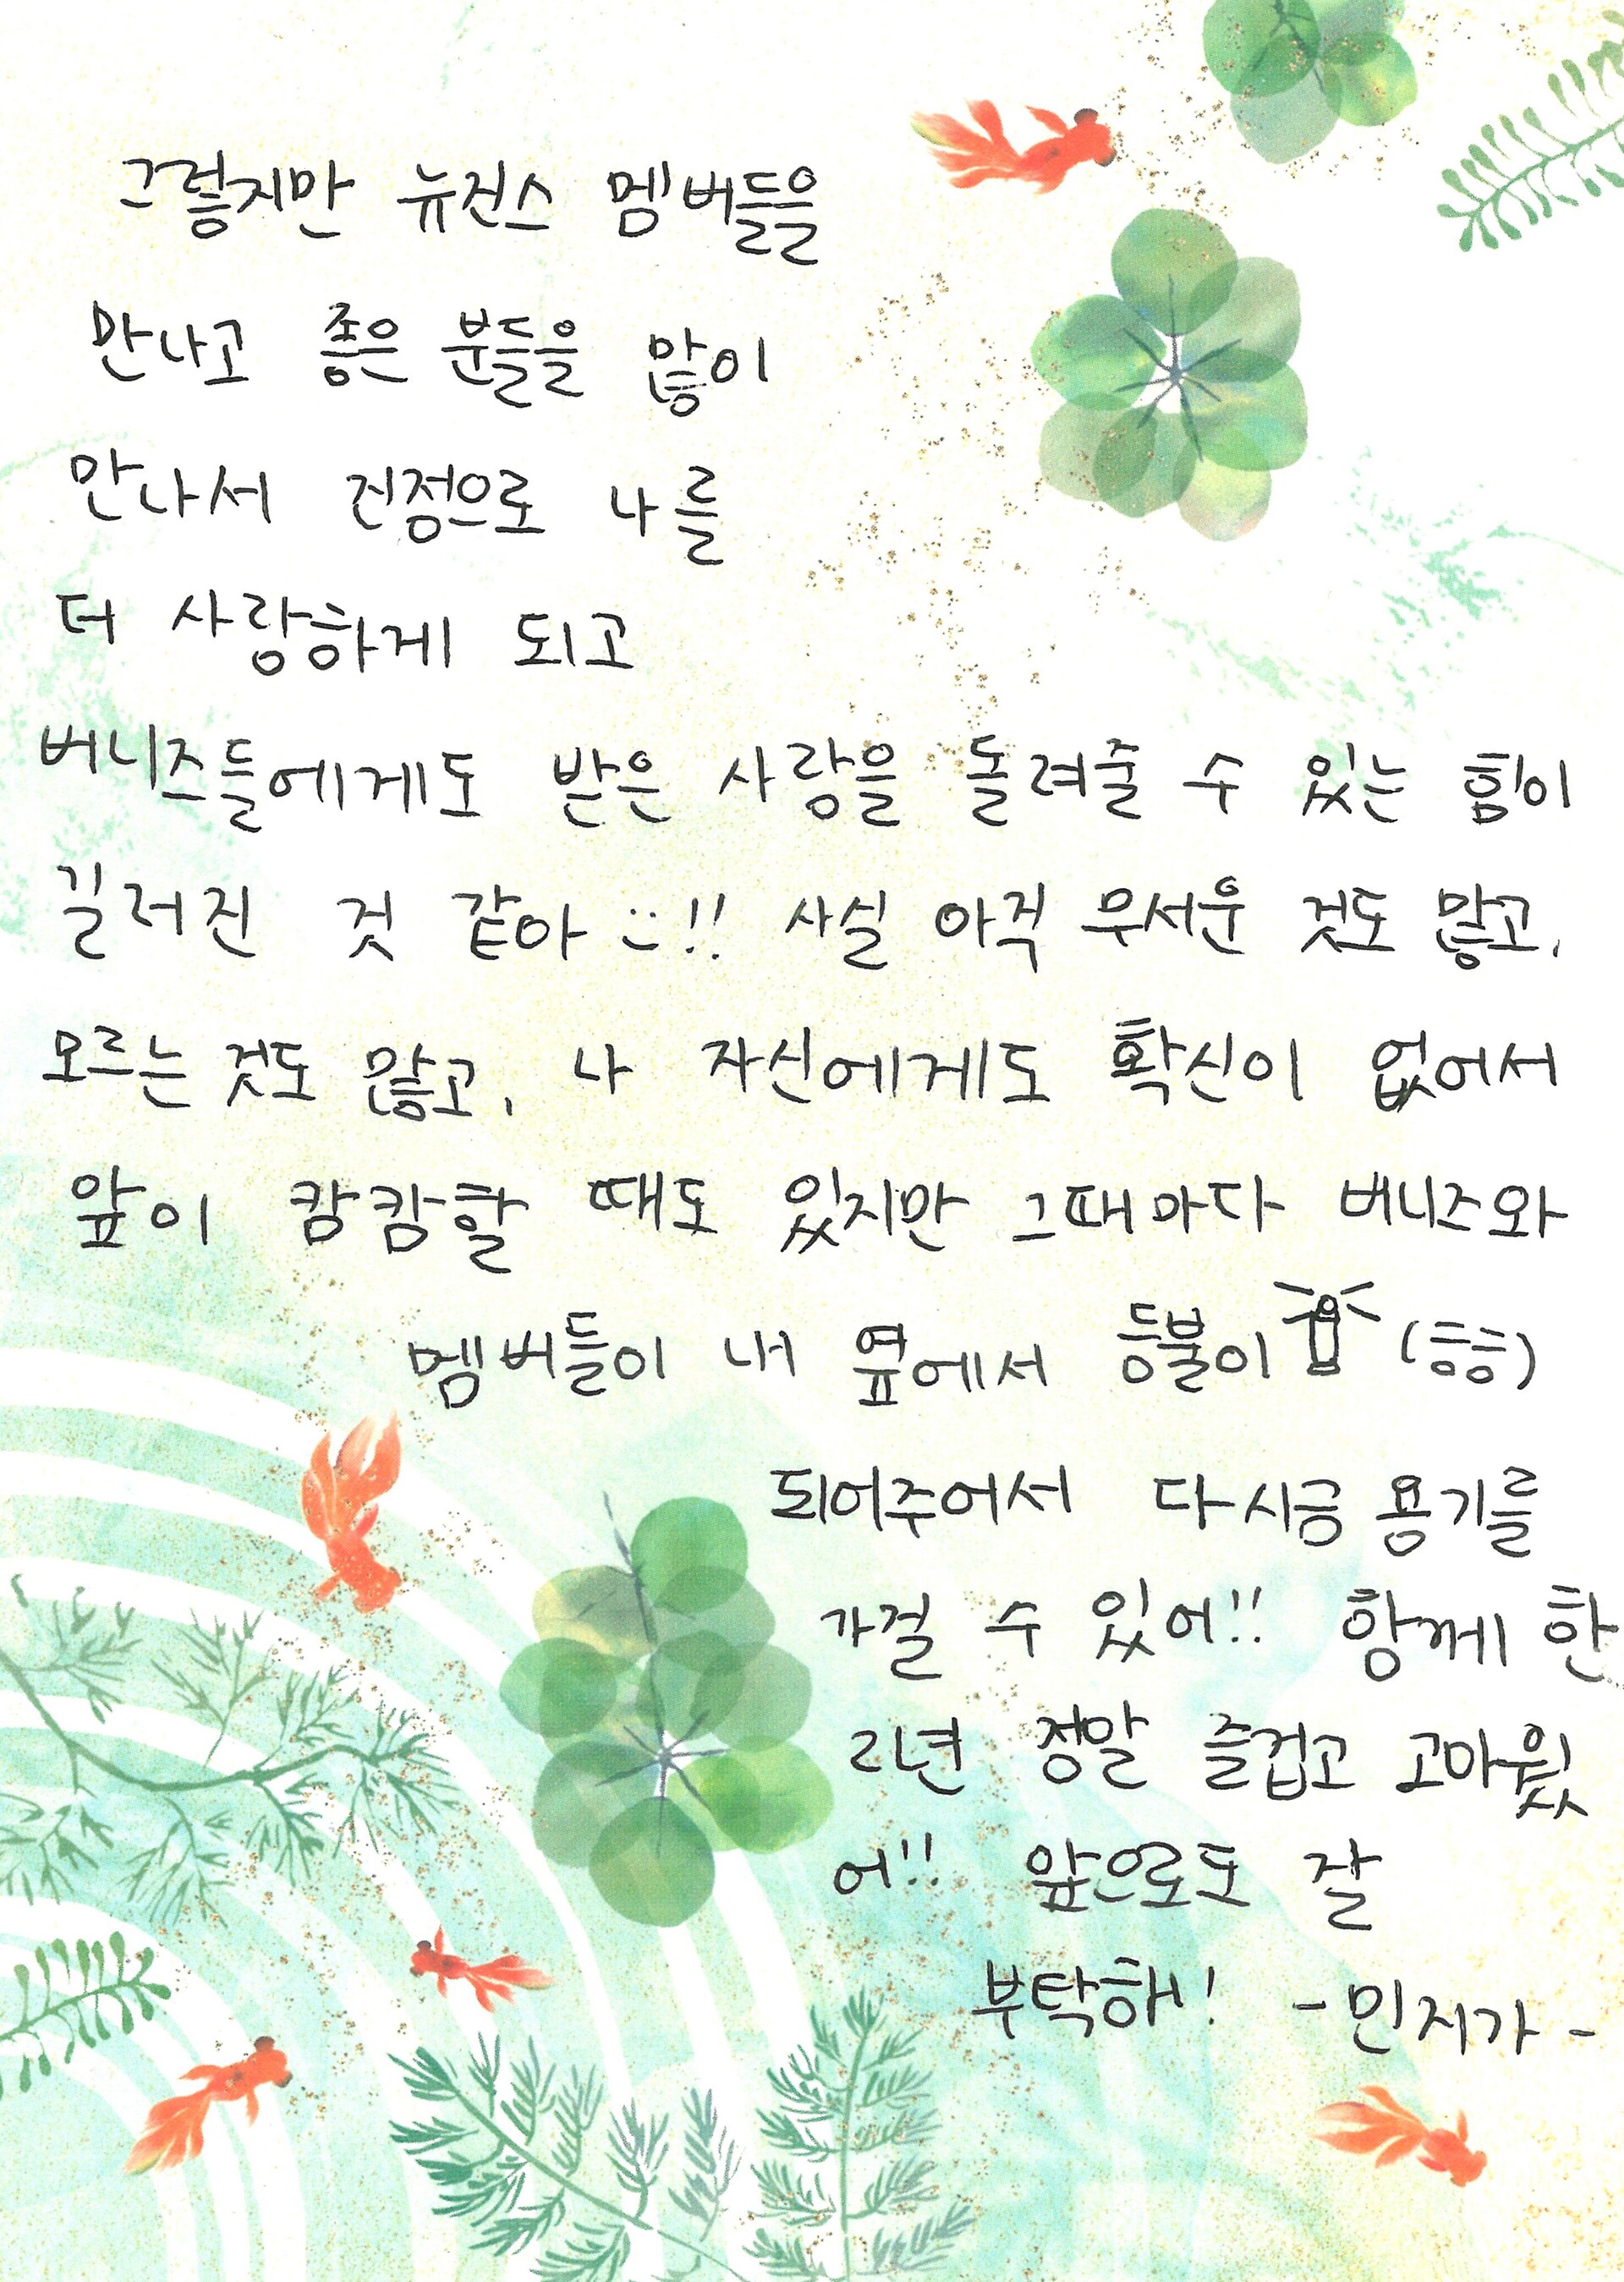 그렇지만 뉴진스 멤버들을
만나고 좋은 분들을 많이
만나서 진정으로 나를
더 사랑하게 되고
버니즈들에게도 받은 사랑을 돌려줄 수 있는 힘이
길러진 것 같아 :)!! 사실 아직 무서운 것도 많고,
모르는 것도 많고, 나 자신에게도 확신이 없어서
앞이 캄캄할 때도 있지만 그때마다 버니즈와
멤버들이 내 옆에서 등불이 (등등)
되어주어서 다시금 용기를
가걸 수 있어!! 항께 한
2년 정말 즐겁고 고마웠
어!! 앞으로도 잘
부탁해! -민지가-